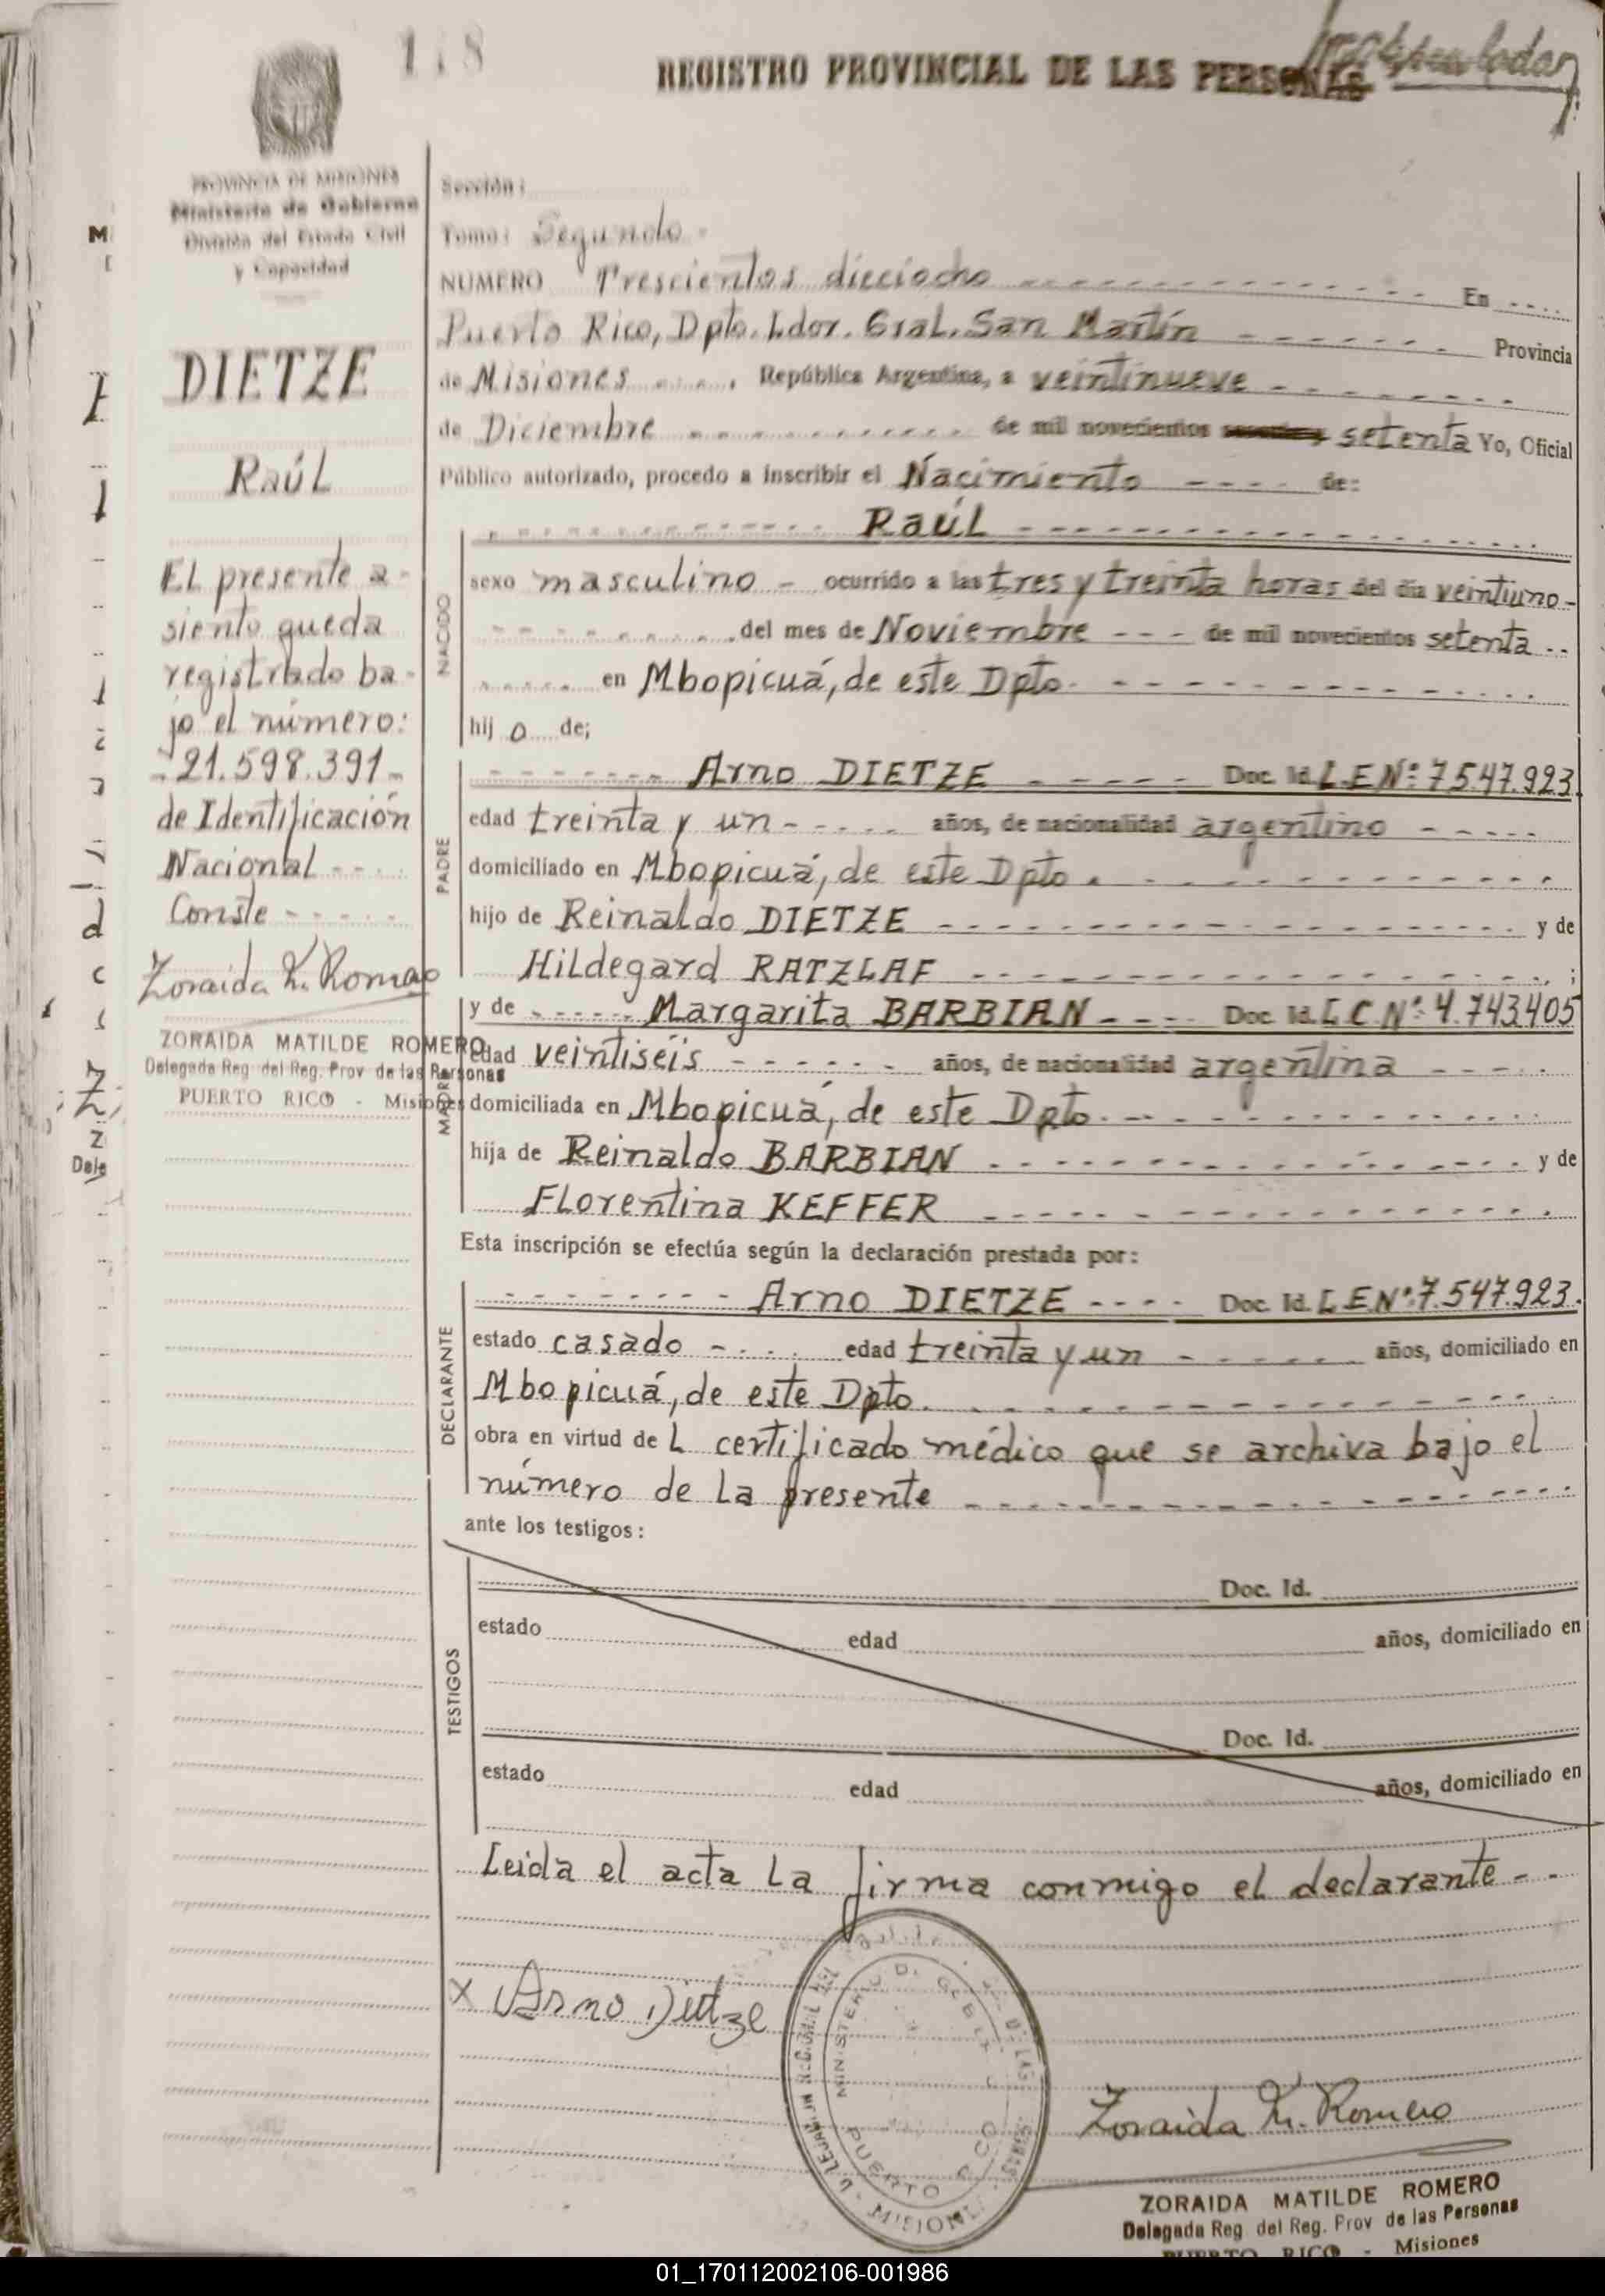 118
REGISTRO PROVINCIAL DE LAS PERSONAS
PROVINCIA DE MISIONES
Ministerio de Gobierno
División del Estado Civil
y Capacidad
DIETZE
Raúl
El presente a-
siento queda
registrado ba-
jo el número:
-21.598.391-
de Identificación
Nacional - - -
Conste - - - - -
Zoraida M. Romero
ZORAIDA MATILDE ROMERO
Delegada Reg. del Reg. Prov de las Personas
PUERTO RICO - Misiones
Sección:
Tomo: Segundo -
NUMERO Trescientos dieciocho - - - En - - -
Puerto Rico, Dpto. Ldor. Gral. San Martín - - - Provincia
de Misiones - - - , República Argentina, a veintinueve - - -
de Diciembre - - - de mil novecientos setenta Yo, Oficial
Público autorizado, procedo a inscribir el Nacimiento - - - - de:
- - - Raúl - - -
NACIDO
sexo masculino - ocurrido a las tres y treinta horas del día veintiuno-
- - - del mes de Noviembre - - - de mil novecientos setenta - -
- - - en Mbopicuá, de este Dpto. - - -
hij o de;
PADRE
- - - Arno DIETZE - - - Doc. Id. L.E.Nº: 7.547.923
edad treinta y un - - - años, de nacionalidad argentino - - -
domiciliado en Mbopicuá, de este Dpto. - - -
hijo de Reinaldo DIETZE - - - y de
Hildegard RATZLAF - - - ;
MADRE
y de - - - Margarita BARBIAN - - - - Doc. Id. L C Nº: 4.743.405
edad veintiséis - - - años, de nacionalidad argentina - - -
domiciliada en Mbopicuá, de este Dpto. - - -
hija de Reinaldo BARBIAN - - - y de
Florentina KEFFER - - -
Esta inscripción se efectúa según la declaración prestada por:
DECLARANTE
- - - Arno DIETZE - - - - Doc. Id. L.E.Nº: 7.547.923.
estado casado - - - edad treinta y un - - - años, domiciliado en
Mbopicuá, de este Dpto. - - -
obra en virtud de L certificado médico que se archiva bajo el
número de la presente - - -
ante los testigos:
TESTIGOS
Doc. Id.
estado edad años, domiciliado en
Doc. Id.
estado edad años, domiciliado en
Leida el acta la firma conmigo el declarante - -
x Arno Dietze
MINISTERIO DE
PUERTO RICO
MISIONES
Zoraida M. Romero
ZORAIDA MATILDE ROMERO
Delegada Reg del Reg. Prov de las Personas
PUERTO RICO - Misiones
01_170112002106-001986